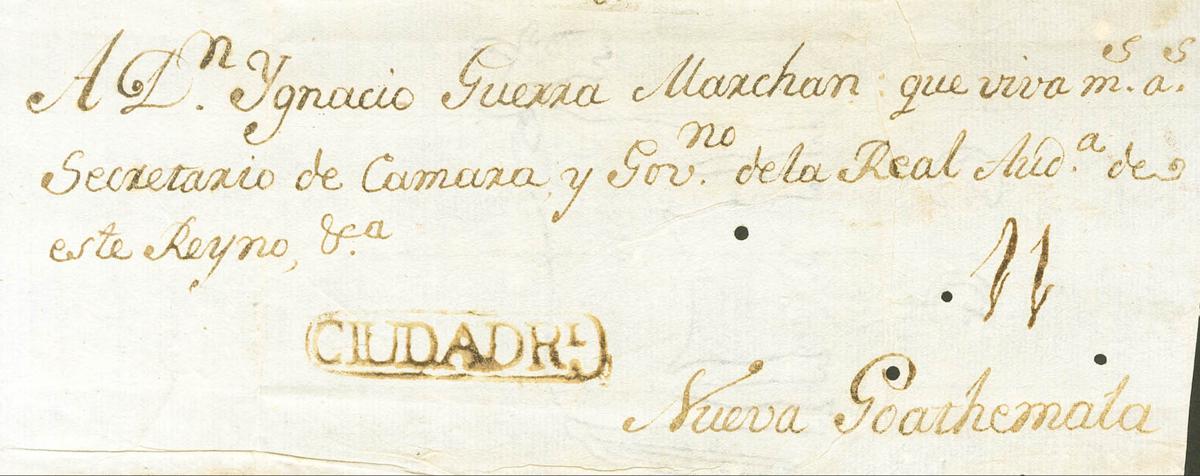 A Dn. Ygnacio Guerra Marchan que viva ms. as.
Secretario de Camara, y Govno. de la Real Auda. de
este Reyno, &a.
11
CIUDADRL.
Nueva Goathemala